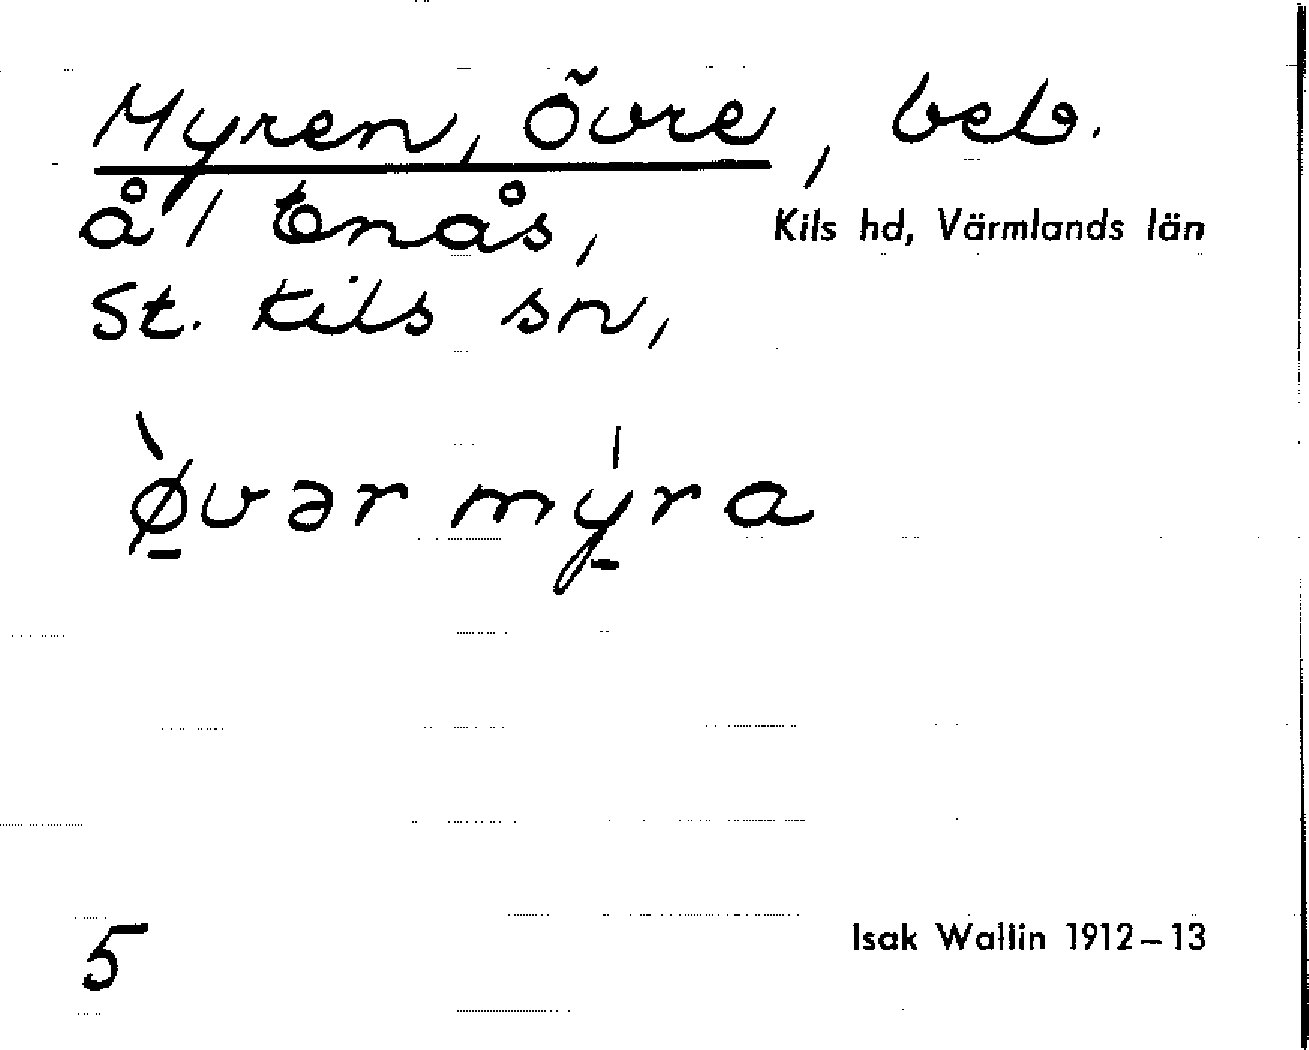 Myren, Övre, beb.
å / Enås,
Kils hd, Värmlands län
St. Kils sn,
ø̱̀vər mý̱ra
5
Isak Wallin 1912–13